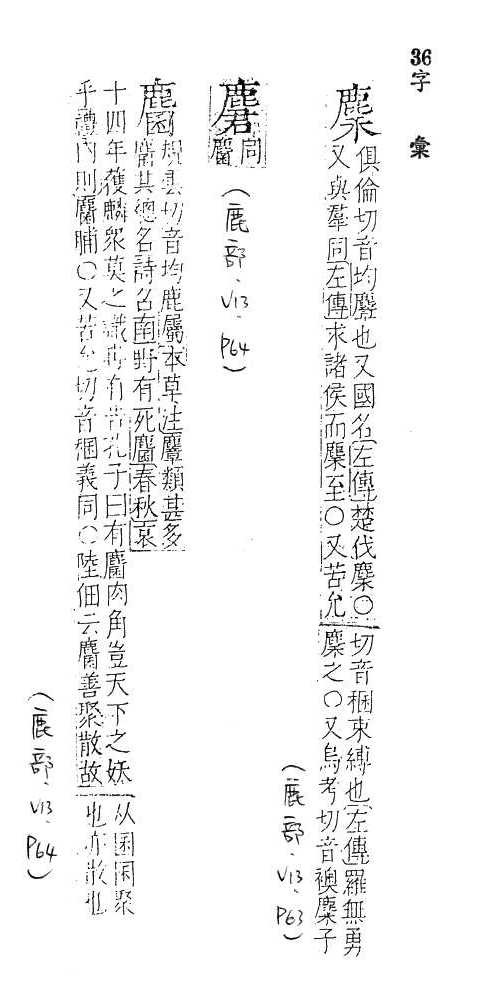 36字彙
麇
俱倫切音均麞也又國名左傳楚伐麇○
又與羣同左傳求諸侯而麇至○又苦允
切音梱束縛也左傳羅無勇
麇之○又烏考切音襖麇子
(鹿部.V13.P63)
麏
同
麕
(鹿部.V13.P64)
麕
規倫切音均鹿屬本草注麞類甚多
麕其總名詩召南野有死麕春秋哀
十四年獲麟眾莫之識 有告孔子曰有麕肉角豈天下之妖
乎禮內則麕脯○又苦允切音稛義同○陸佃云麕善聚散故
从囷囷聚
也亦散也
(鹿部.V13.P64)